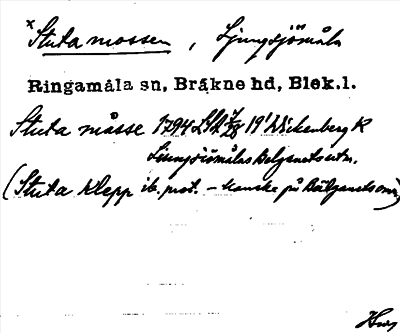 x Stuta mossen, Ljungsjömåla
Ringamåla sn, Bräkne hd, Blek.l.
Stuta måsse 1794 19' Wickenberg K
Ljungsjömålas Belganets utm.
(Stuta Klepp ib. prot. – kanske på Bälganets omr.)